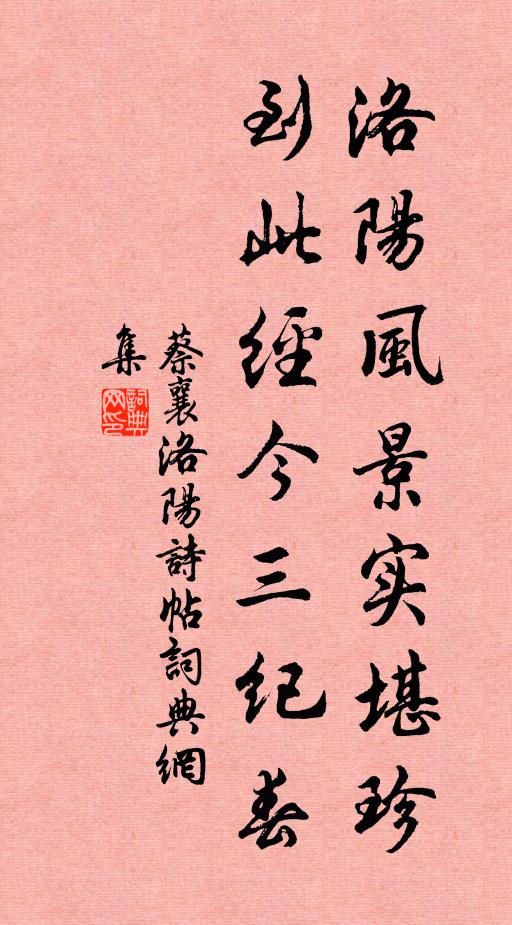 洛陽風景实堪珍
到此經今三紀春
蔡襄洛陽詩帖詞典網
集
詞典
网印